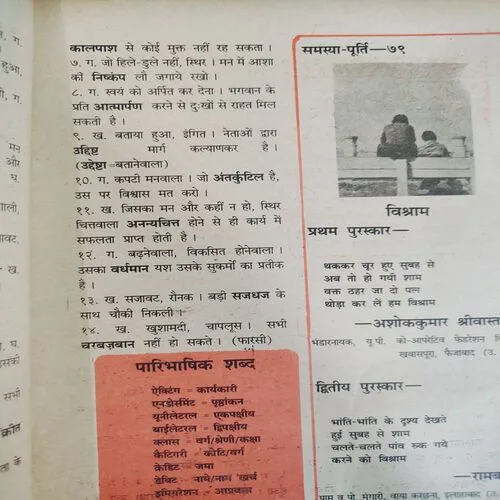 कालपाश से कोई मुक्त नहीं रह सकता ।
७. ग. जो हिले-डुले नहीं, स्थिर । मन में आशा
की निष्कंप लौ जगाये रखो ।
८. ग. स्वयं को अर्पित कर देना । भगवान के
प्रति आत्मार्पण करने से दुःखों से राहत मिल
सकती है ।
९. ख. बताया हुआ, इंगित । नेताओं द्वारा
उद्दिष्ट मार्ग कल्याणकर है ।
(उद्देष्टा=बतानेवाला)
१०. ग. कपटी मनवाला । जो अंतर्कुटिल है,
उस पर विश्वास मत करो ।
११. ख. जिसका मन और कहीं न हो, स्थिर
चित्तवाला अनन्यचित्त होने से ही कार्य में
सफलता प्राप्त होती है ।
१२. ग. बढ़नेवाला, विकसित होनेवाला ।
उसका वर्धमान यश उसके सुकर्मों का प्रतीक
है ।
१३. ख. सजावट, रौनक । बड़ी सजधज के
साथ चौकी निकली ।
१४. ख. खुशामदी, चापलूस । सभी
चरबज़बान नहीं हो सकते । (फारसी)
पारिभाषिक शब्द
ऐक्टिंग = कार्यकारी
एनडोर्समेंट = पृष्ठांकन
यूनीलेटरल = एकपक्षीय
बाईलेटरल = द्विपक्षीय
क्लास = वर्ग/श्रेणी/कक्षा
कैटिगरी = कोटि/वर्ग
क्रेडिट = जमा
डेबिट = नामे/नाम खर्च
समस्या-पूर्ति—७९
विश्राम
प्रथम पुरस्कार—
थककर चूर हुए सुबह से
अब तो हो गयी शाम
वक्त ठहर जा दो पल
थोड़ा कर लें हम विश्राम
—अशोककुमार श्रीवास्त
भंडारनायक, यू.पी. को-आपरेटिव फेडरेशन
खवासपुरा, फैजाबाद (उ.
द्वितीय पुरस्कार—
भांति-भांति के दृश्य देखते
हुई सुबह से शाम
चलते-चलते पांव रुक गये
करने को विश्राम